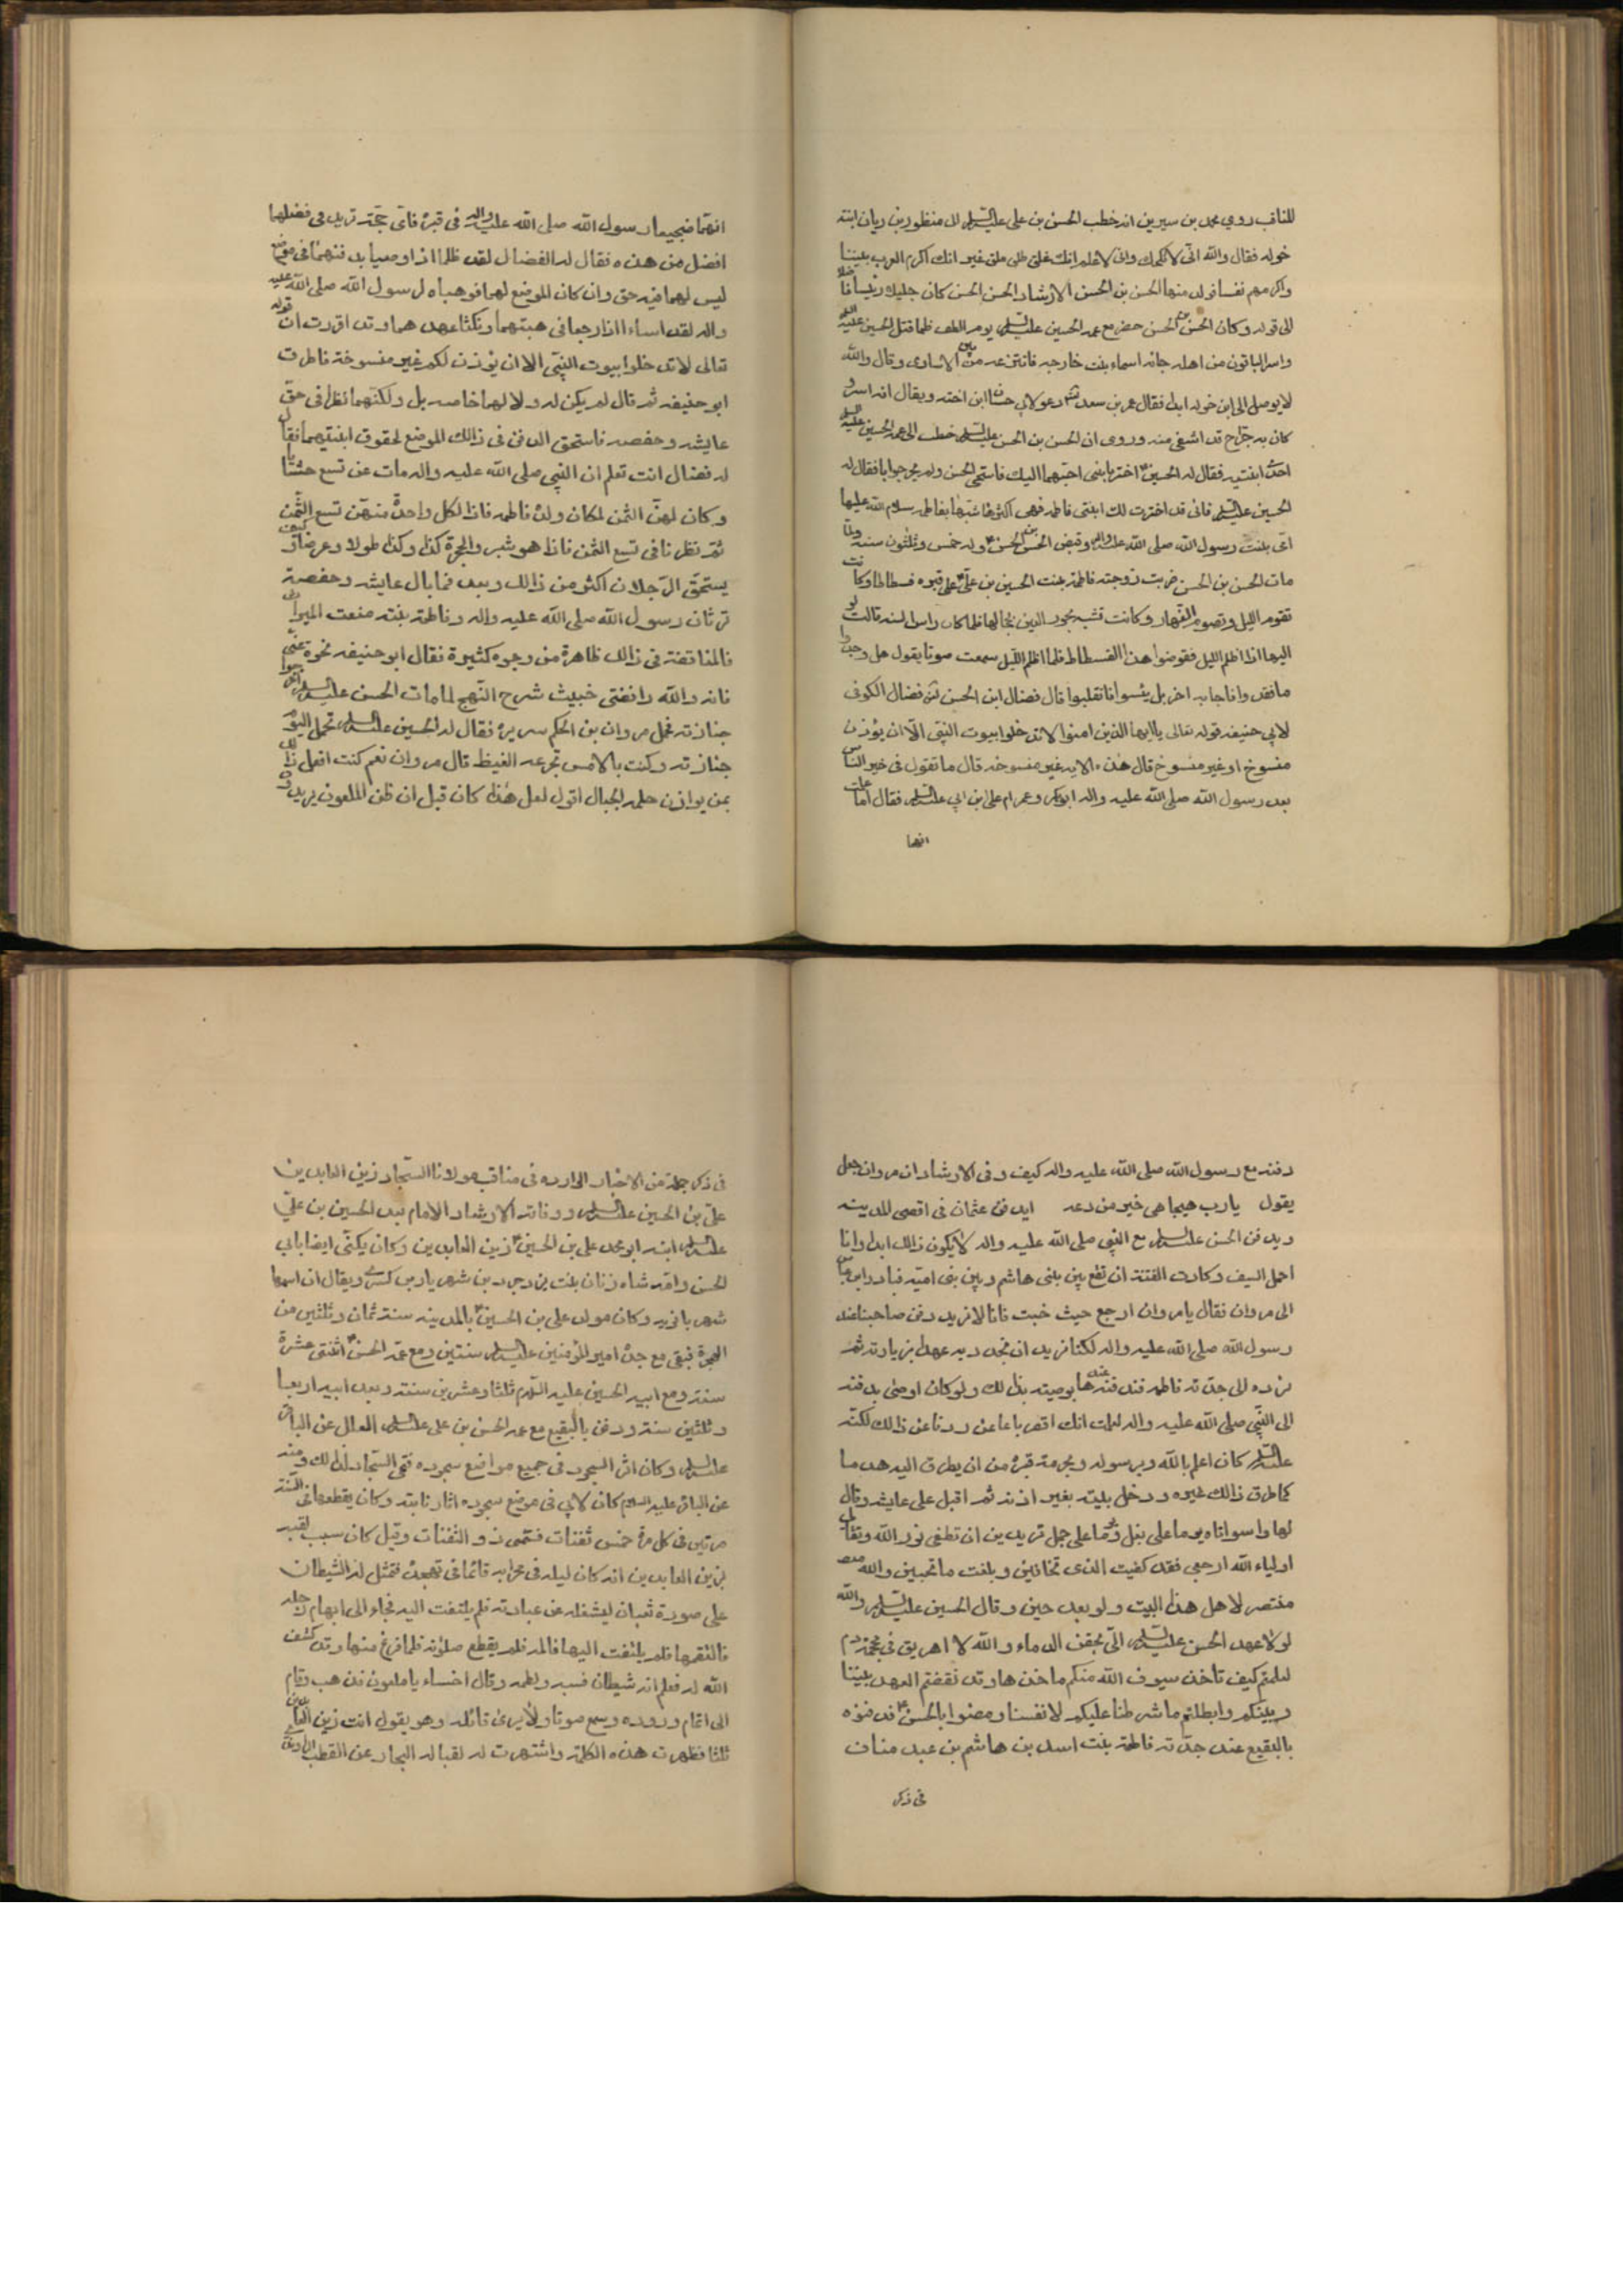 للناقب روي محمد بن سيرين انه خطب الحسن بن علي عليه السلم الى منظور بن ريان ابنته
خوله فقال والله اني لانكحك واني لاعلم انك غلق طلق ملق غير انك اكرم العرب بيتا
واكرمهم نفسا فولد منها الحسن بن الحسن الارشاد الحسن بن الحسن كان جليلا رئيسا فاضلا
الى قوله وكان الحسن بن الحسن حضر مع عمه الحسين عليه السلم يوم الطف فلما قتل الحسين عليه السلم
واسر الباقون من اهله جاءه اسماء بنت خارجه فانتزعه من بين الاسارى وقال والله
لا يوصل الى ابن خوله ابدا فقال عمر بن سعد دعو لابي حسان ابن اخته ويقال انه اسر و
كان به جراح قد اشفى منه وروى ان الحسن بن الحسن عليه السلم خطب الى عمه الحسين عليه السلم
احدى ابنتيه فقال له الحسين اختر يا بني احبهما اليك فاستحى الحسن ولم يحر جوابا فقال له
الحسين عليه السلم فاني قد اخترت لك ابنتي فاطمه فهي اكثرهما شبها بفاطمه سلام الله عليها
امي بنت رسول الله صلى الله عليه واله وقبض الحسن بن الحسن وله خمس وثلثون سنه ولما
مات الحسن بن الحسن ضربت زوجته فاطمة بنت الحسين بن علي على قبره فسطاطا وكانت
تقوم الليل وتصوم النهار وكانت تشبه بحور العين لجمالها فلما كان راس السنه قالت لمو
اليها اذا اظلم الليل فقوضوا هذا الفسطاط فلما اظلم الليل سمعت صوتا يقول هل وجدوا
ما فقدوا فاجابه اخر بل يئسوا فانقلبوا قال فضال ابن الحسن بن فضال الكوفى
لابي حنيفه قوله تعالى ياايها الذين امنوا لا تدخلوا بيوت النبي الا ان يؤذن
منسوخ او غير منسوخ قال هذه الايه غير منسوخه قال ما تقول فى خير الناس
بعد رسول الله صلى الله عليه واله ابوبكر وعمر ام علي بن ابي عليه السلم فقال اما علمت
انهما
انهما ضجيعا رسول الله صلى الله عليه واله فى قبره فاي حجة تريد فى فضلهما
افضل من هذه فقال له الفضال لقد ظلما اذ اوصيا بدفنهما فى موضع
ليس لهما فيه حق وان كان الموضع لهما فوهباه لرسول الله صلى الله عليه
واله لقد اساءا اذ ارجعا فى هبتهما ونكثا عهدهما وقد اقررت ان قوله
تعالى لا تدخلوا بيوت النبي الا ان يؤذن لكم غير منسوخة فاطرق
ابو حنيفه ثم قال لم يكن له ولا لهما خاصه بل ولكنهما نظرا فى حق
عايشه وحفصه فاستحق الدفن فى ذالك الموضع لحقوق ابنتيهما فقال
له فضال انت تعلم ان النبي صلى الله عليه واله مات عن تسع حشايا
وكان لهن الثمن لمكان ولده فاطمه فاذا لكل واحدة منهن تسع الثمن
ثم نظرنا فى تسع الثمن فاذا هو شبر والحجرة كذا وكذا طولا وعرضا فكيف
يستحق الرجلان اكثر من ذالك وبعد فما بال عايشه وحفصة
ترثان رسول الله صلى الله عليه واله وفاطمة بنته منعت الميراث
فالمناقضة فى ذالك ظاهرة من وجوه كثيرة فقال ابوحنيفه نحوه عني
فانه والله رافضي خبيث شرح النهج لما مات الحسن عليه السلم اخرجوا
جنازته فحمل مروان بن الحكم سريره فقال له الحسين عليه السلم تحمل اليوم
جنازته وكنت بالامس تجرعه الغيظ قال مروان نعم كنت افعل ذالك
بمن يوازن حلمه الجبال اقول لعل هذا كان قبل ان ظن الملعون يريدون
دفنه مع رسول الله صلى الله عليه واله كيف وفى الارشاد ان مروان جعل
يقول يارب هيجا هي خير من دعه ايدفن عثمان فى اقصى المدينه
ويدفن الحسن عليه السلم مع النبي صلى الله عليه واله لا يكون ذالك ابدا وانا
احمل السيف وكادت الفتنة ان تقع بين بنى هاشم وبين بنى اميه فبادر ابن عباس
الى مروان فقال يامروان ارجع حيث جئت فانا لا نريد دفن صاحبنا عند
رسول الله صلى الله عليه واله لكنا نريد ان نجدد به عهدا بزيارته ثم
نرده الى جدته فاطمه فندفنه عندها بوصيته بذلك ولو كان اوصى بدفنه
الى النبي صلى الله عليه واله لعلمت انك اقصر باعا عن ردنا عن ذالك لكنه
عليه السلم كان اعلم بالله وبرسوله وبحرمة قبره من ان يطرق اليه هدما
كما طرق ذالك غيره ودخل بيته بغير اذنه ثم اقبل على عايشه وقال
لها واسواتاه يوما على بغل ويوما على جمل تريدين ان تطفى نور الله وتقاتل
اولياء الله ارجعي فقد كفيت الذى تخافين وبلغت ما تحبين والله
منتصر لاهل هذا البيت ولو بعد حين وقال الحسين عليه السلم والله
لولا عهد الحسن عليه السلم الي بحقن الدماء والله لا اهريق فى محجمة دم
لعلمتم كيف تاخذ سيوف الله منكم ماخذها وقد نقضتم العهد بيننا
وبينكم وابطلتم ما شرطنا عليكم لانفسنا ومضوا بالحسن فدفنوه
بالبقيع عند جدته فاطمة بنت اسد بن هاشم بن عبد مناف
فى ذكر
فى ذكر جملة من الاخبار الوارده فى مناقب مولانا السجاد زين العابدين
علي بن الحسين عليه السلم ووفاته الارشاد الامام بعد الحسين بن علي
عليه السلم ابنه ابومحمد علي بن الحسين زين العابدين وكان يكنى ايضا بابي
الحسن وامه شاه زنان بنت يزدجرد بن شهريار بن كسرى ويقال ان اسمها
شهربانويه وكان مولد علي بن الحسين بالمدينه سنة ثمان وثلثين من
الهجرة فبقى مع جده امير المؤمنين عليه السلم سنتين ومع عمه الحسن اثنتى عشرة
سنة ومع ابيه الحسين عليه السلم ثلثا وعشرين سنة وبعد ابيه اربعا
وثلثين سنة ودفن بالبقيع مع عمه الحسن بن علي عليه السلم العلل عن الباقر
عليه السلم وكان اثر السجود فى جميع مواضع سجوده فسمى السجاد لذلك ومنه
عن الباقر عليه السلام كان لابي فى موضع سجوده اثار ناتية وكان يقطعها فى السنة
مرتين فى كل مرة خمس ثفنات فسمى ذو الثفنات وقيل كان سبب لقبه
بزين العابدين انه كان ليله فى محرابه قائما فى تهجده فتمثل له الشيطان
على صورة ثعبان ليشغله عن عبادته فلم يلتفت اليه فجاء الى ابهام رجله
فالتقمها فلم يلتفت اليها فالمه فلم يقطع صلوته فلما فرغ منها وقد كشف
الله له فعلم انه شيطان فسبه ولطمه وقال اخساء ياملعون فذهب وقام
الى اتمام ورده وسمع صوتا ولا يرى قائله وهو يقول انت زين العابدين
ثلثا فظهرت هذه الكلمة واشتهرت له لقبا له البحار عن القطب الراوندى